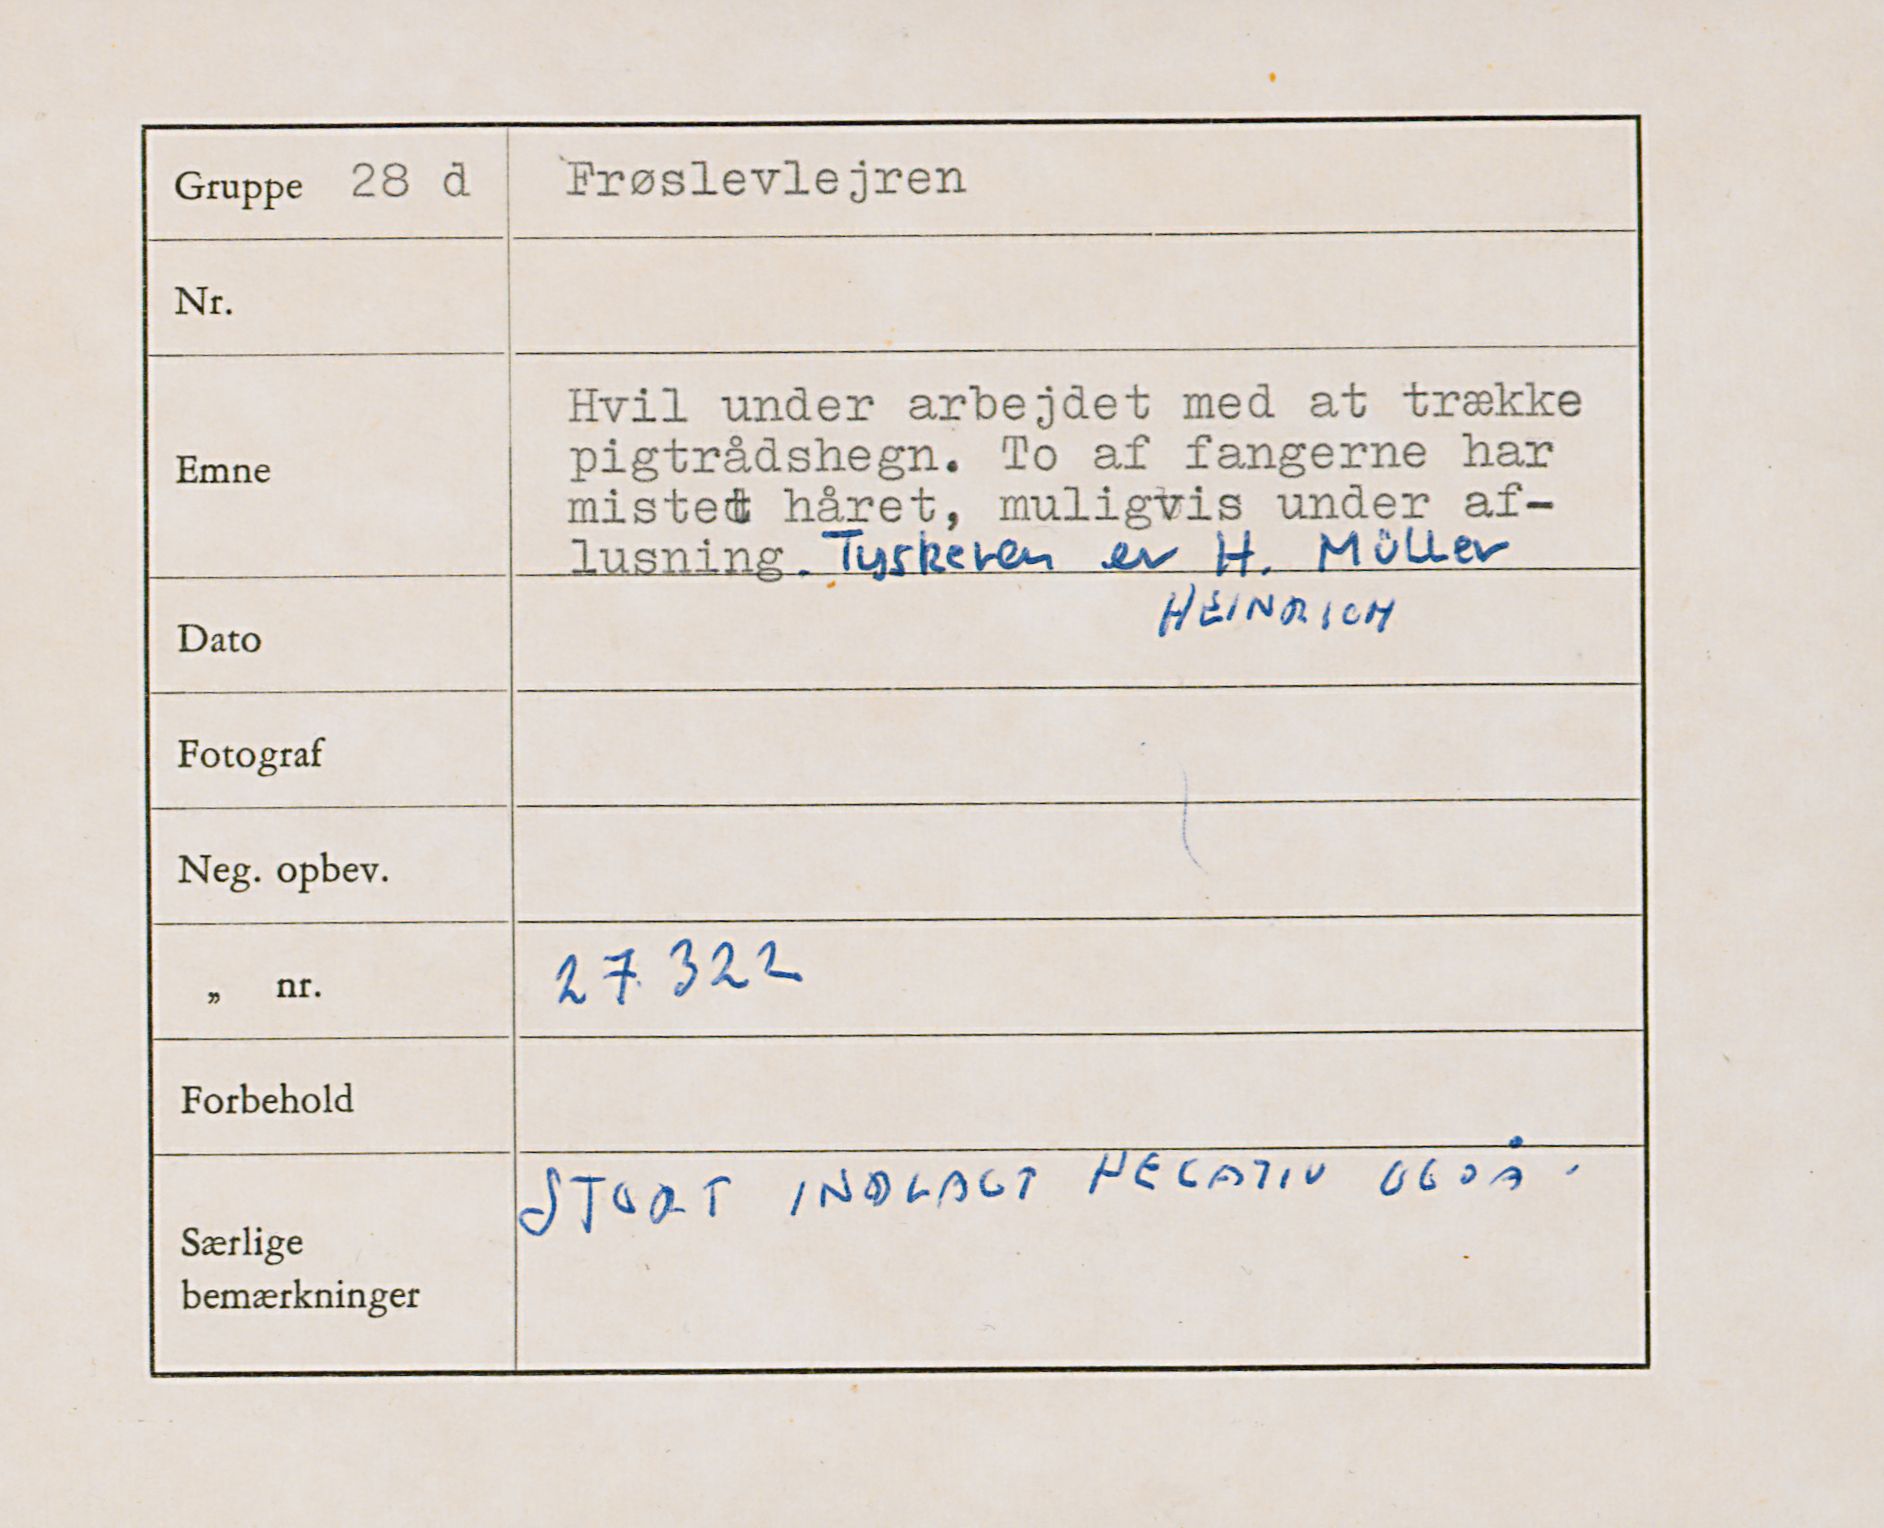 Gruppe 28 d Frøslevlejren
Nr.
Hvil under arbejdet med at trække
pigtrådshegn. To af fangerne har
Emne
mistet håret, muligvis under af-
lusning. Tyskeren er H. Müller
HEINRICH
Dato
Fotograf
Neg. opbev.
„ nr. 27.322
Forbehold
STORT INDLAGT NEGATIV OGSÅ.
Særlige
bemærkninger